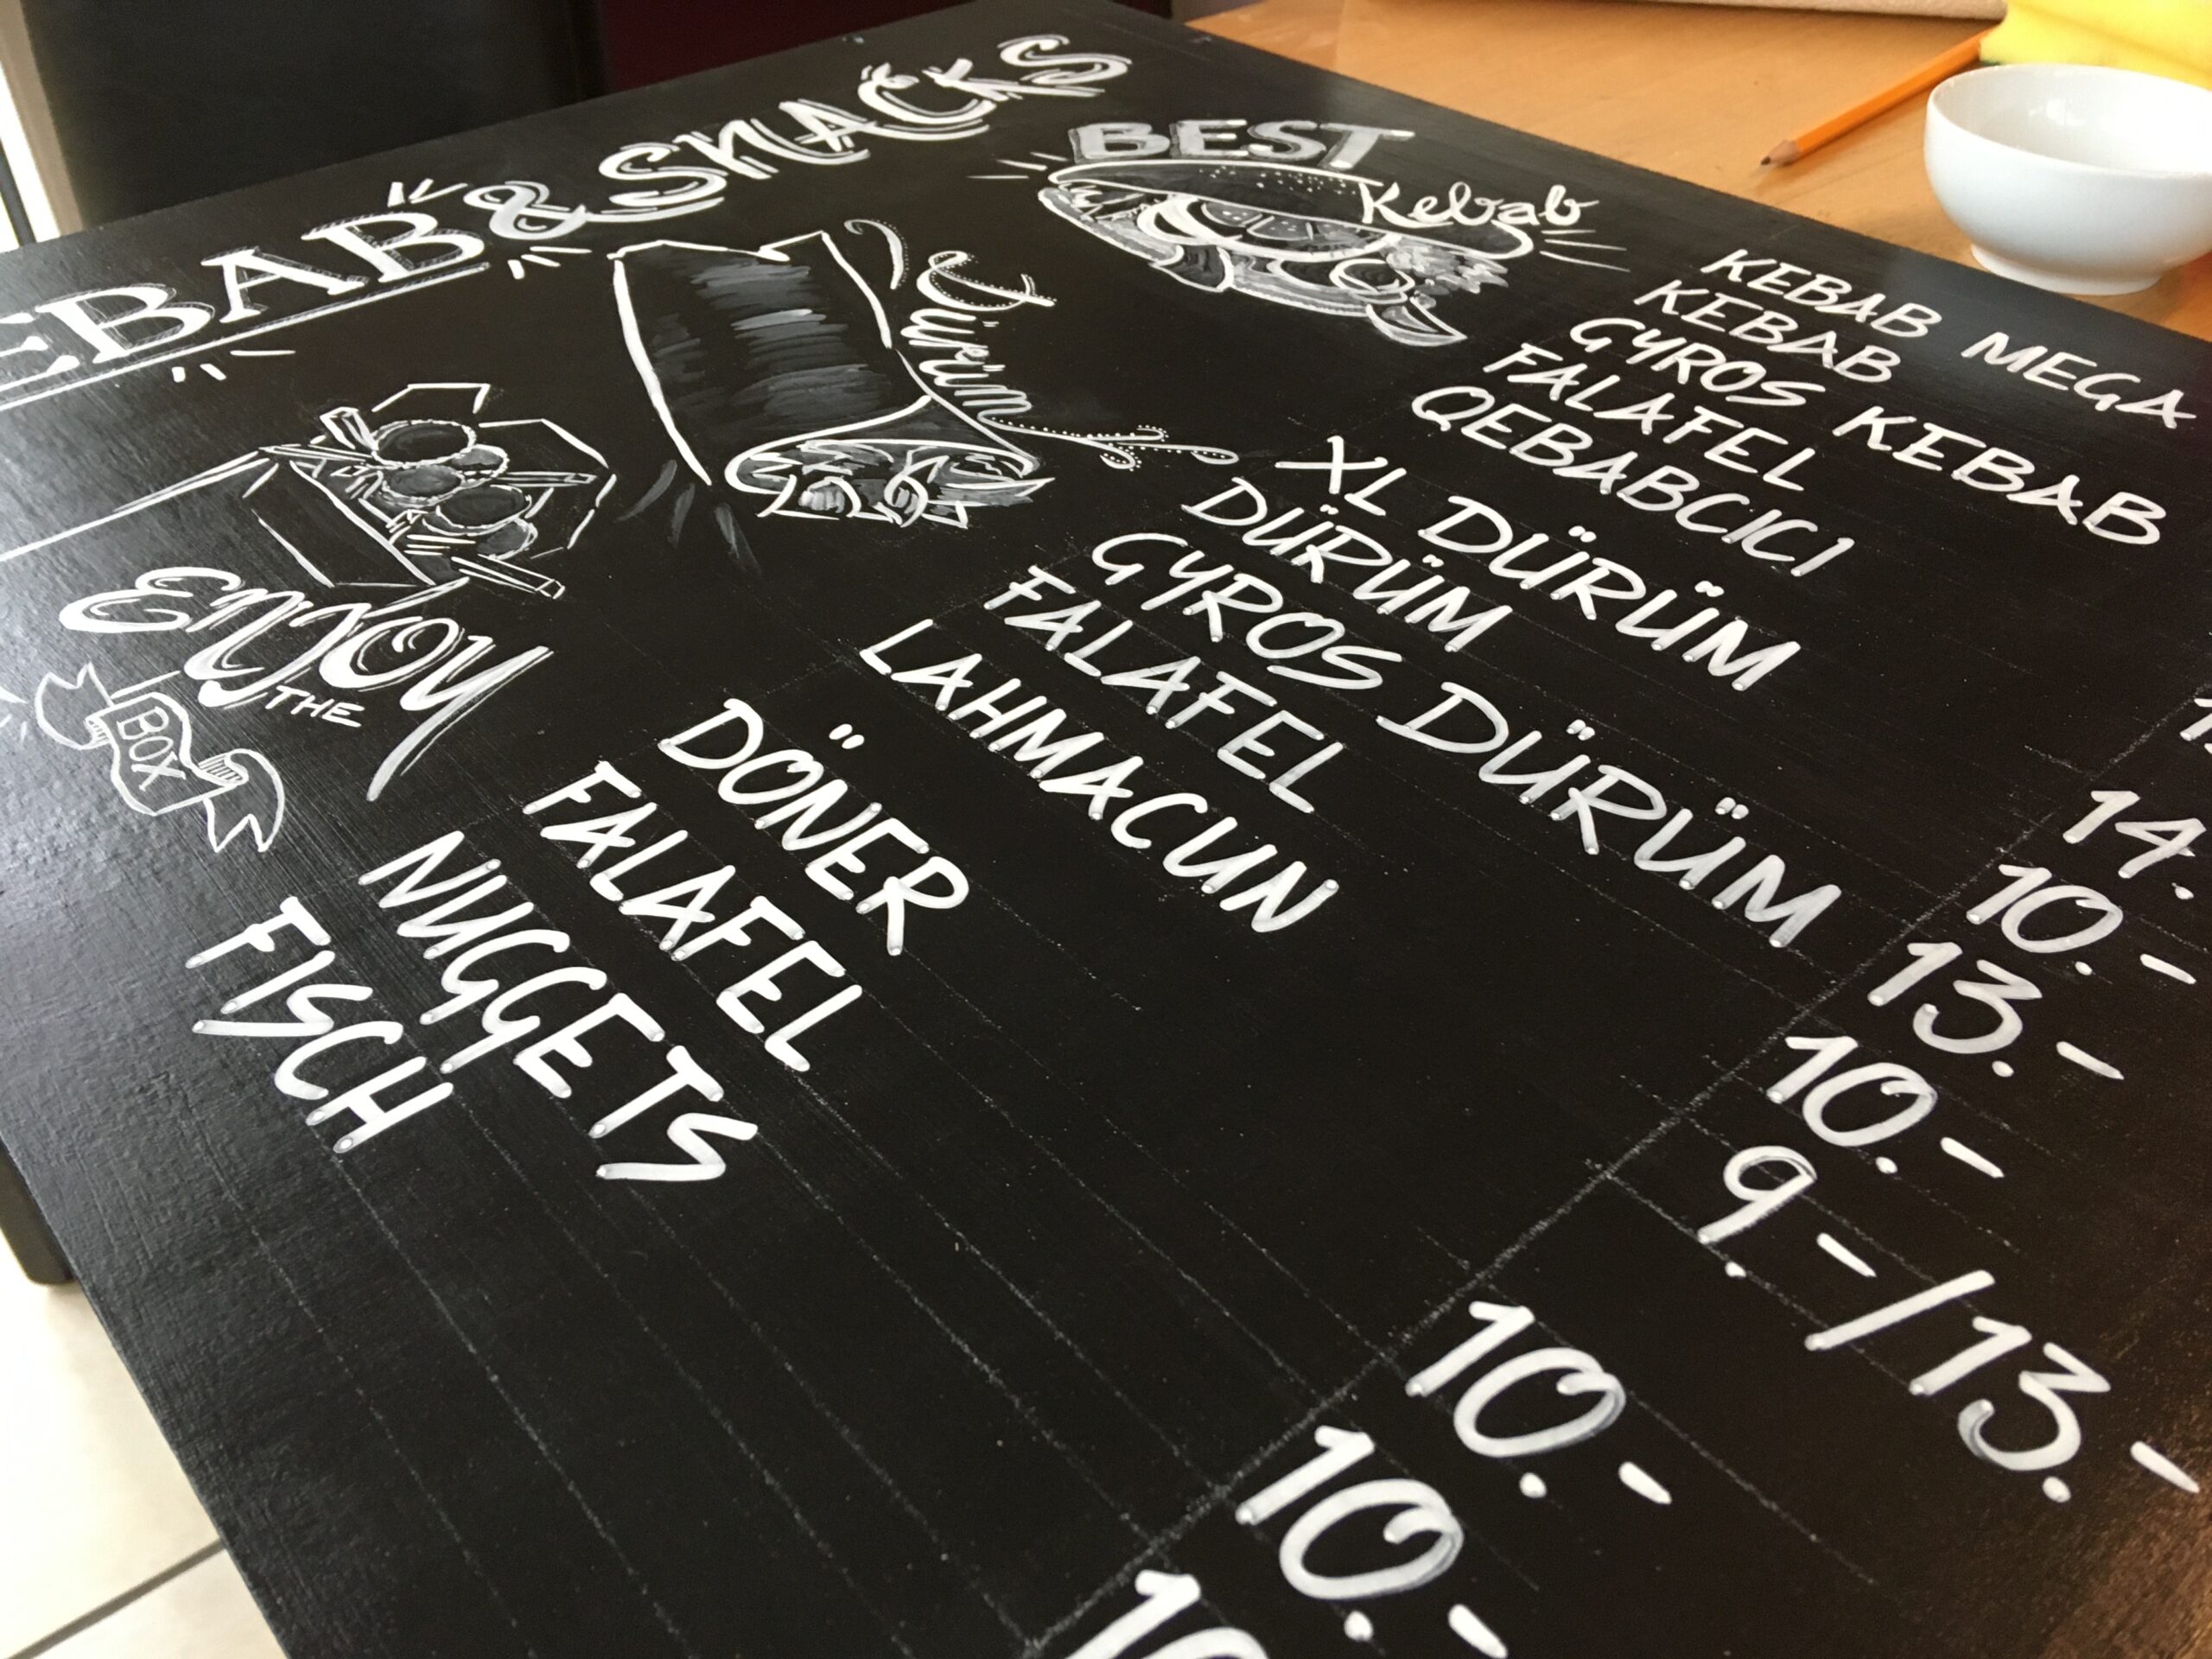 EBAB & SNACKS
BEST
Kebab
KEBAB MEGA
KEBAB
GYROS KEBAB
FALAFEL
QEBABCICI
Dürüm
XL DÜRÜM 14.-
DÜRÜM 10.-
GYROS DÜRÜM 13.-
FALAFEL 10.-
LAHMACUN 9.-/13.-
ENJOY
THE
BOX
DÖNER 10.-
FALAFEL 10.-
NUGGETS 10
FISCH